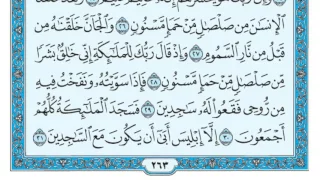 ٱلْإِنسَٰنَ مِن صَلْصَٰلٍ مِّنْ حَمَإٍ مَّسْنُونٍ ٢٦ وَٱلْجَآنَّ خَلَقْنَٰهُ مِن
قَبْلُ مِن نَّارِ ٱلسَّمُومِ ٢٧ وَإِذْ قَالَ رَبُّكَ لِلْمَلَٰٓئِكَةِ إِنِّى خَٰلِقٌۢ بَشَرًا
مِّن صَلْصَٰلٍ مِّنْ حَمَإٍ مَّسْنُونٍ ٢٨ فَإِذَا سَوَّيْتُهُۥ وَنَفَخْتُ فِيهِ
مِن رُّوحِى فَقَعُوا۟ لَهُۥ سَٰجِدِينَ ٢٩ فَسَجَدَ ٱلْمَلَٰٓئِكَةُ كُلُّهُمْ
أَجْمَعُونَ ٣٠ إِلَّآ إِبْلِيسَ أَبَىٰٓ أَن يَكُونَ مَعَ ٱلسَّٰجِدِينَ ٣١
٢٦٣